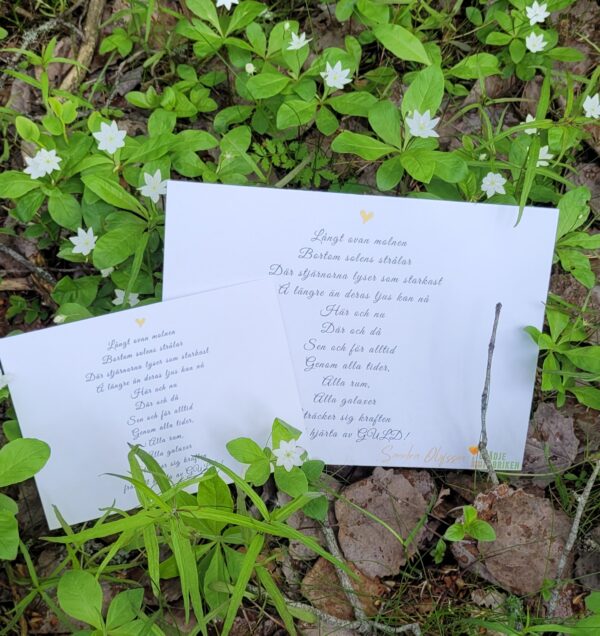 Långt ovan molnen
Bortom solens strålar
Där stjärnorna lyser som starkast
Å längre än deras ljus kan nå
Här och nu
Där och då
Sen och för alltid
Genom alla tider,
Alla rum,
Alla galaxer
sträcker sig kraften
hjärta av GULD!
Sandra Olsson
Långt ovan molnen
Bortom solens strålar
Där stjärnorna lyser som starkast
Å längre än deras ljus kan nå
Här och nu
Där och då
Sen och för alltid
Genom alla tider,
Alla rum,
Alla galaxer
sig kraften
av GULD!